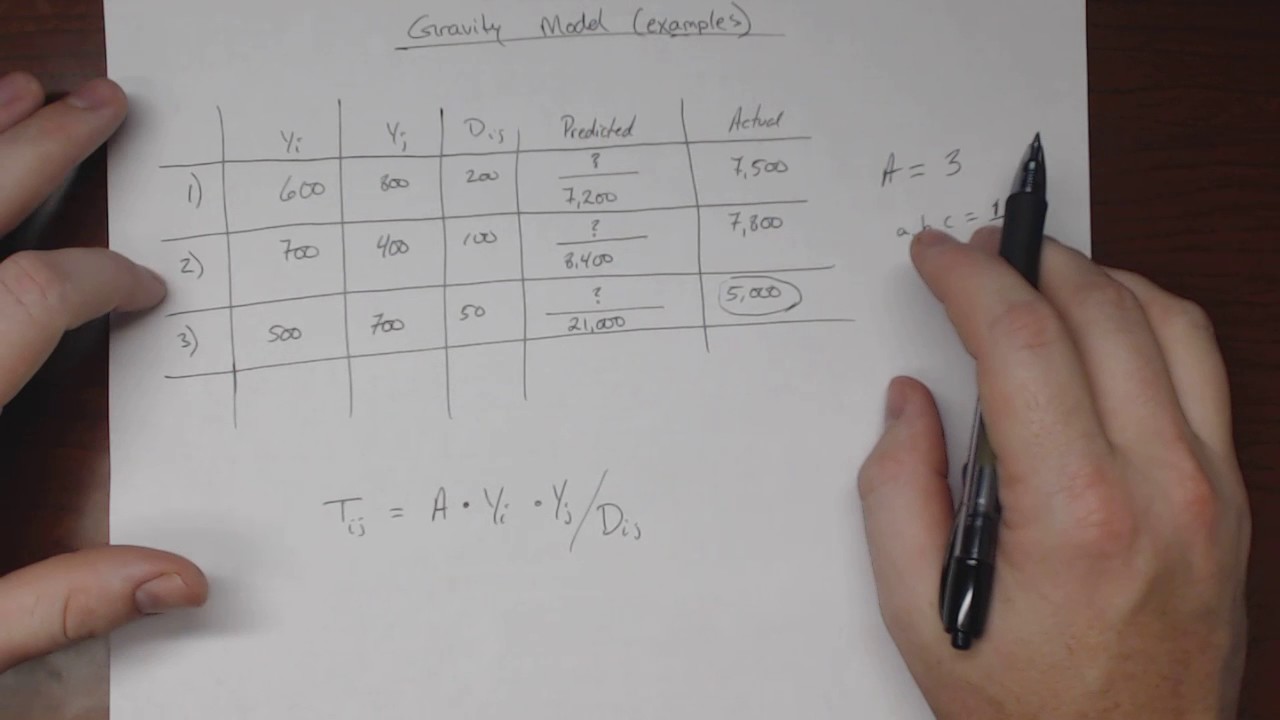 Gravity Model (examples)
Yi Yj Dij Predicted Actual
1) 600 800 200 ? 7,200 7,500
2) 700 400 100 ? 8,400 7,800
3) 500 700 50 ? 21,000 5,000
A = 3
a, b, c = 1
Tij = A · Yi · Yj / Dij